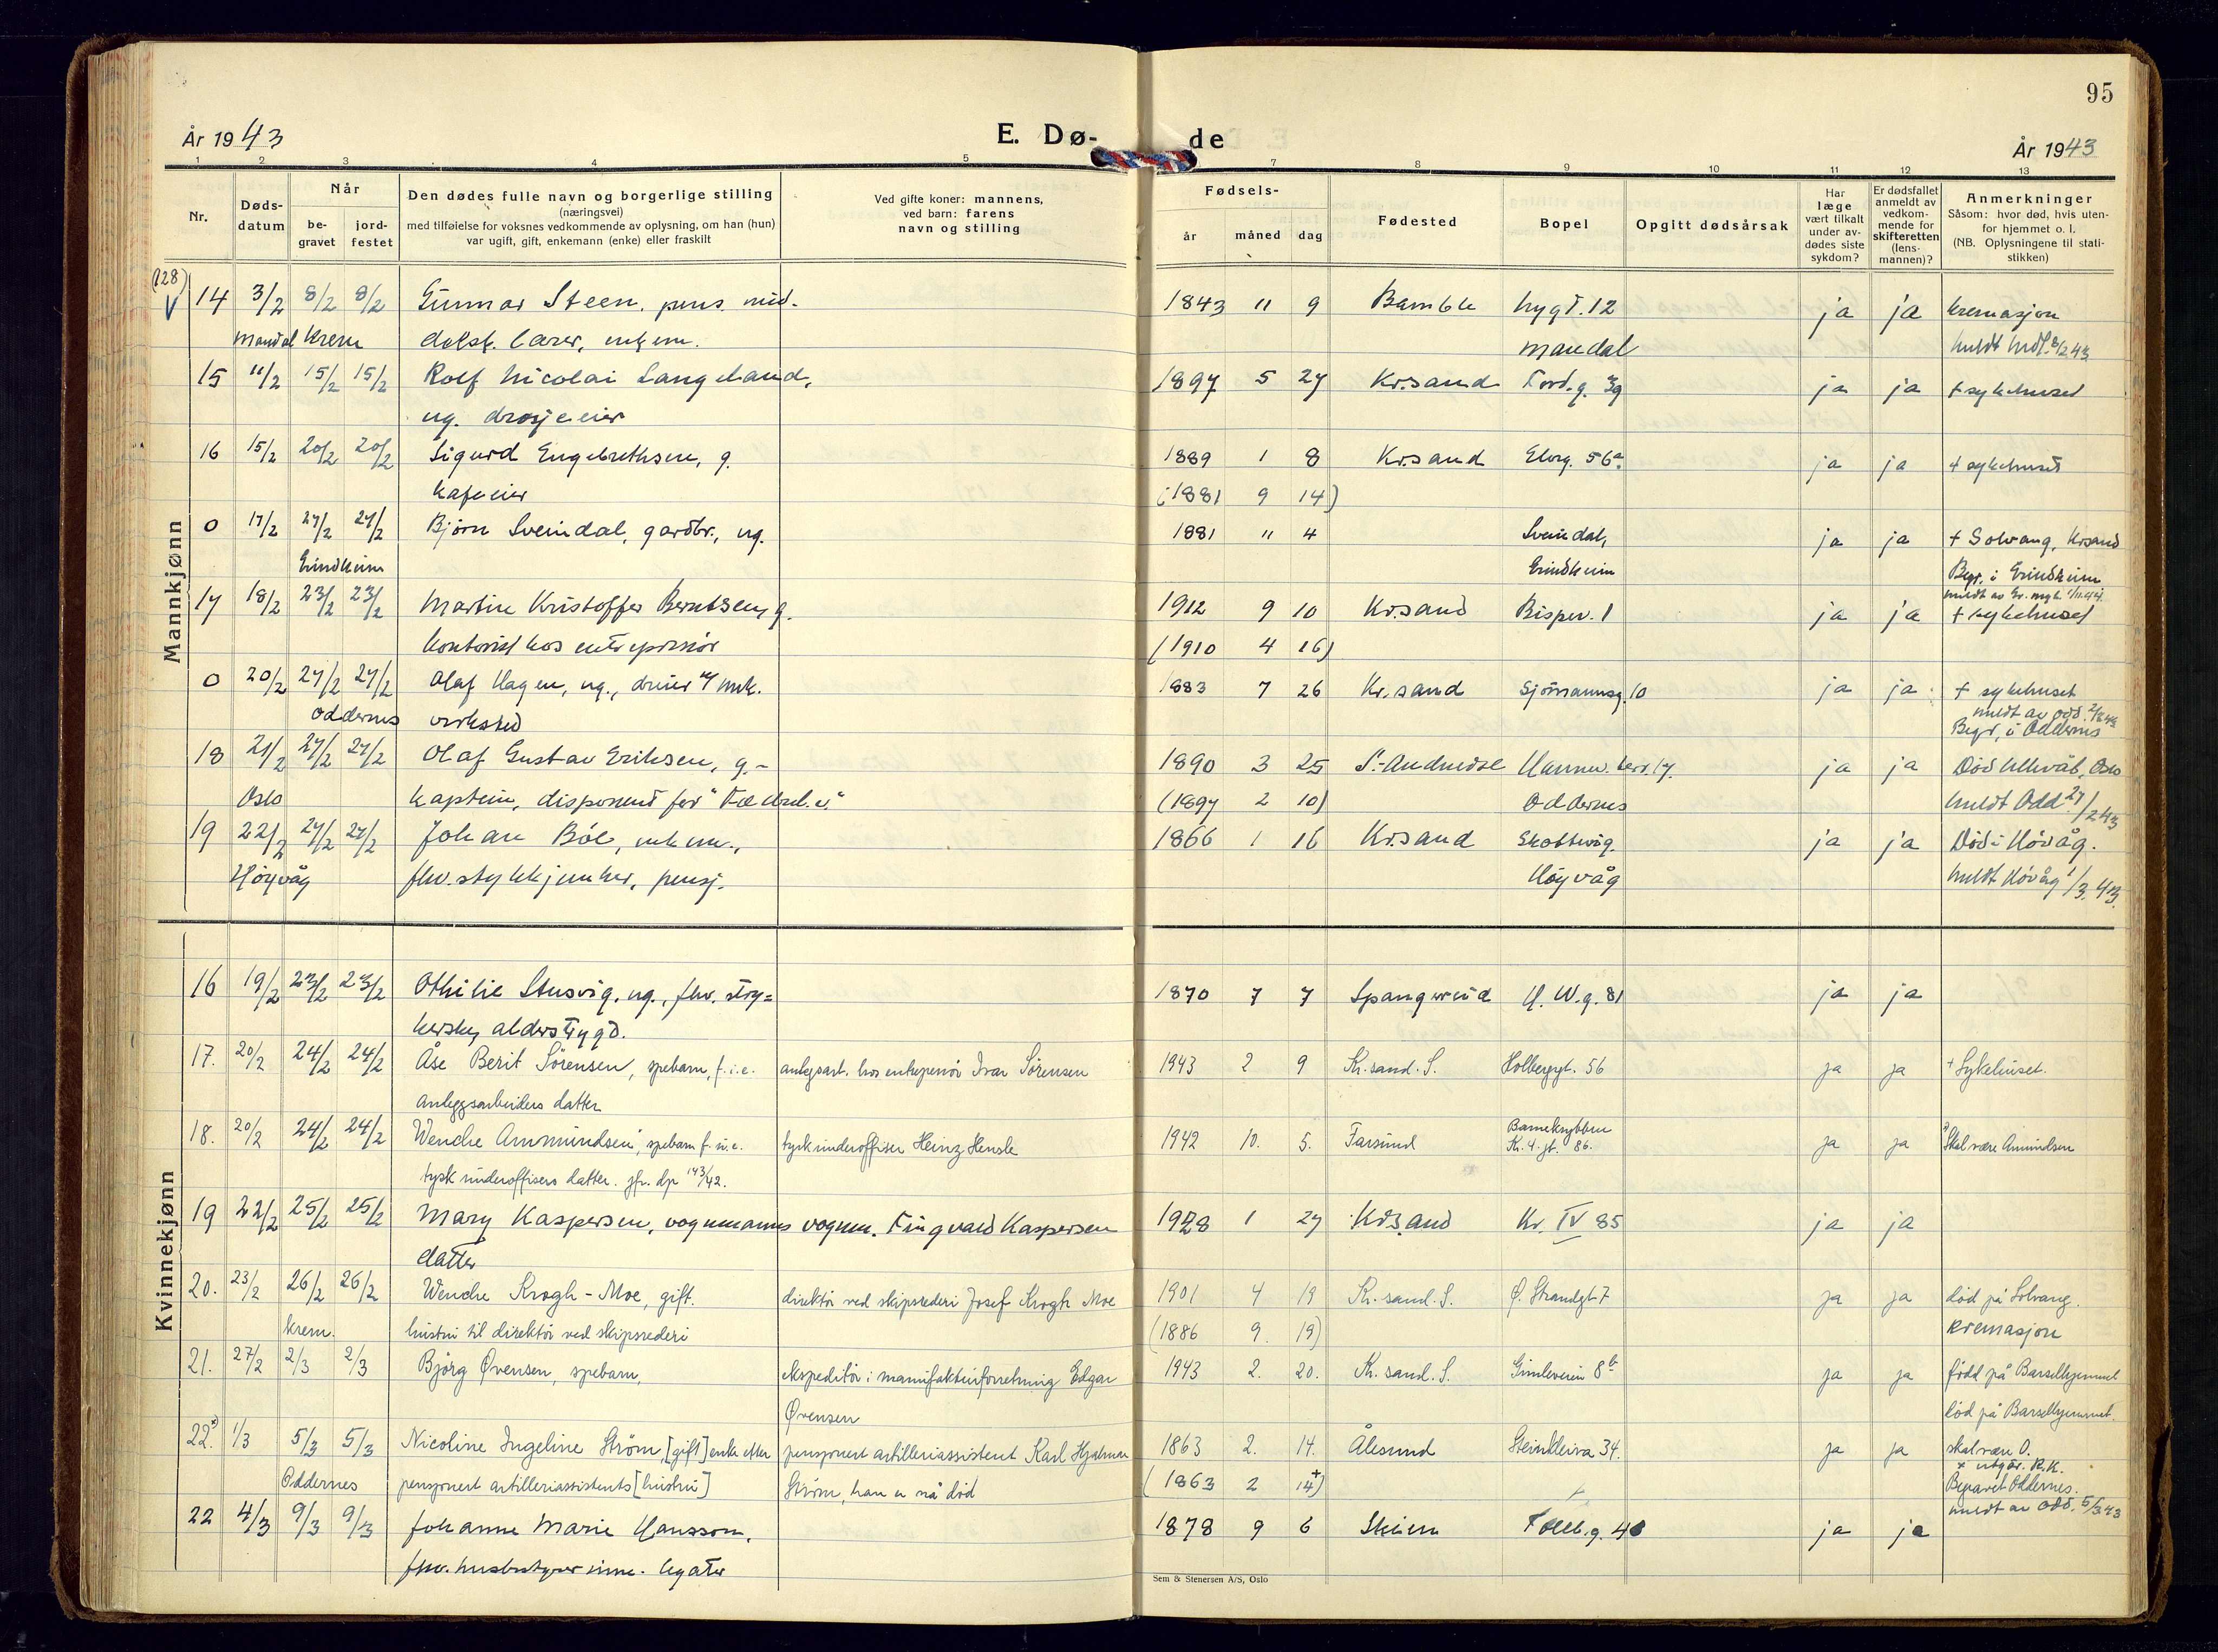 95
År 1943
E. Dø-
de
År 1943
1 2 3 4 5 7 8 9 10 11 12 13
Nr.
Døds-
datum
Når
be-
gravet
jord-
festet
Den dødes fulle navn og borgerlige stilling
(næringsvei)
med tilføielse for voksnes vedkommende av oplysning, om han (hun)
var ugift, gift, enkemann (enke) eller fraskilt
Ved gifte koner: mannens,
ved barn: farens
navn og stilling
Fødsels-
år måned dag
Fødested
Bopel
Opgitt dødsårsak
Har
læge
vært tilkalt
under av-
dødes siste
sykdom?
Er dødsfallet
anmeldt av
vedkom-
mende for
skifteretten
(lens-
mannen)?
Anmerkninger
Såsom: hvor død, hvis uten-
for hjemmet o. l.
(NB. Oplysningene til stati-
stikken)
Mannkjønn
(128)
14 3/2 8/2 8/2 Gunnar Steen, pens. mid- 1843 11 9 Bamble hygd. 12 ja ja kremasjon
Mandal Krem delsk. lærer, enkem. Mandal muldt Mdl. 8/2 43
15 11/2 15/2 15/2 Rolf Nicolai Langeland, 1897 5 27 Kr.sand Tord.g. 39 ja ja + sykehuset
ug. drosjeeier
16 15/2 20/2 20/2 Sigurd Engebrethsen, g. 1889 1 8 Kr.sand Elvg. 56a ja ja + sykehuset
kafeeier (1881 9 14)
0 17/2 27/2 27/2 Bjørn Sveindal, gardbr., ug. 1881 11 4 Sveindal, ja ja + Solvang, Krsand
Grindheim Grindheim Begr. i Grindheim
17 18/2 23/2 23/2 Martin Kristoffer Berntsen, g. 1912 9 10 Kr.sand Bispev. 1 ja ja + sykehuset
kontorist hos entreprenør (1910 4 16)
0 20/2 27/2 27/2 Olaf Hagen, ug., dreier v/ mek. 1883 7 26 Kr.sand Sjømannsg. 10 ja ja + sykehuset
Oddernes verksted muldt av Odd.
Begr. i Oddernes
18 21/2 27/2 27/2 Olaf Gustav Eriksen, g.- 1890 3 25 St. Andreas Hannev. terr. 17. ja ja Død Ullevål, Oslo
Oslo kaptein, disponent for "Fædrel.v." (1897 2 10) Oddernes muldt Odd 27/2 43
19 22/2 27/2 27/2 Johan Bøe, enkem., 1866 1 16 Kr.sand Skottevig. ja ja Død i Høvåg.
Høyvåg fhv. stykkjunker, pensj. Høyvåg muldt Høvåg 1/3 43.
Kvinnekjønn
16 19/2 23/2 23/2 Othilie Stusvig, ug., fhv. stry= 1870 7 7 Spangereid H. W.g. 81 ja ja
kerske, alderstrygd.
17. 20/2 24/2 24/2 Åse Berit Sørensen, spebarn, f.i.e. anlegsarb. hos entrepenør Ivar Sørensen 1943 2 9 Kr.sand. S. Holbergsgt. 56 ja ja + Sykehuset.
anleggsarbeiders datter
18. 20/2 24/2 24/2 Wenche Ammundsen, spebarn f. u. e. tysk underoffiser Heinz Hensle 1942 10. 5. Farsund Barnekrybben ja ja Skal være Amundsen
tysk underoffisers datter. jfr. dp 143/42. Kr. 4. gt. 86.
19 22/2 25/2 25/2 Mary Kaspersen, vognmanns vognm. Tingvald Kaspersen 1928 1 27 Kr.sand Kr. IV 85 ja ja
datter
20. 23/2 26/2 26/2 Wenche Krogh-Moe, gift. direktør ved skipsrederi Josef Krogh Moe 1901 4 19 Kr. sand. S. Ø. Strandgt. 7 ja ja død på Solvang.
krem. hustru til direktør ved skipsrederi (1886 9. 19) kremasjon
21. 27/2 2/3 2/3 Bjørg Øvensen, spebarn, ekspeditør i manufakturforretning Edgar 1943 2. 20. Kr. sand. S. Gimleveien 8b ja ja født på Barselhjemmet
Øvensen død på Barselhjemmet.
22. 1/3 5/3 5/3 Nicoline Ingeline Strøm, [gift] enke etter pensjonert artilleriassistent Karl Hjalmar 1863 2. 14. Ålesund Steinkleiva 34. ja ja skal være 0.
Oddernes pensjonert artilleriassistents [hustru] Strøm, han er nå død (1863 2 14) + utgår. R.K.
Begravet Oddernes.
muldt av Odd. 5/3 43
22 4/3 9/3 9/3 Johanne Marie Hansson, 1878 9 6 Skien Tollb.g. 46 ja ja
fhv. husbestyrerinne. legater
Sem & Stenersen A/S, Oslo